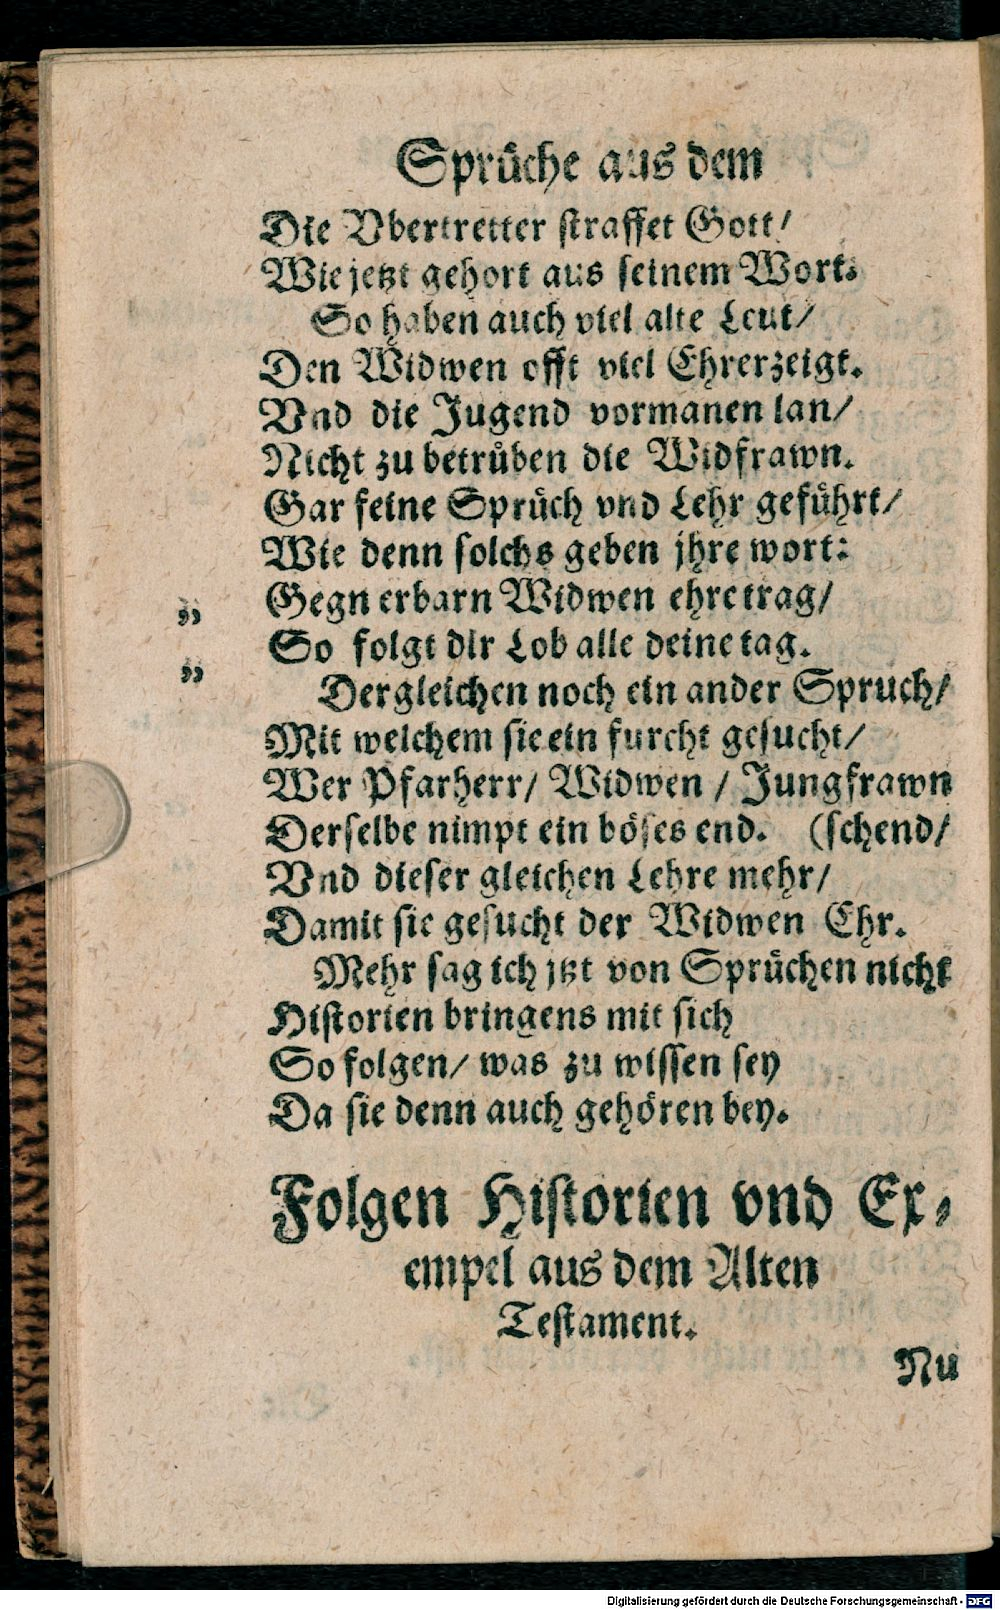 Sprüche aus dem
Die Vbertretter straffet Gott/
Wie jetzt gehort aus seinem Wort.
So haben auch viel alte Leut/
Den Widwen offt viel Ehr erzeigt.
Vnd die Jugend vormanen lan/
Nicht zu betrůben die Widfrawn.
Gar feine Sprüch vnd Lehr geführt/
Wie denn solchs geben jhre wort:
„ Gegn erbarn Widwen ehre trag/
So folgt dir Lob alle deine tag.
„ Dergleichen noch ein ander Spruch/
Mit welchem sie ein furcht gesucht/
Wer Pfarherr/ Widwen / Jungfrawn
Derselbe nimpt ein böses end. (schend/
Vnd dieser gleichen Lehre mehr/
Damit sie gesucht der Widwen Ehr.
Mehr sag ich jtzt von Sprüchen nicht
Historien bringens mit sich
So folgen/ was zu wissen sey
Da sie denn auch gehören bey.
Folgen Historien vnd Ex-
empel aus dem Alten
Testament.
Nu
Digitalisierung gefördert durch die Deutsche Forschungsgemeinschaft - DFG